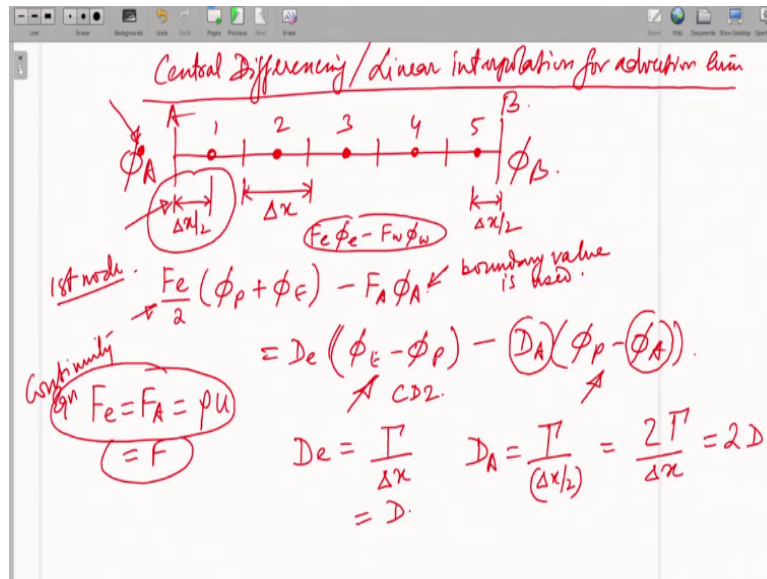 Line Eraser Backgrounds Undo Redo Pages Previous Next Erase Board Web Documents Show Desktop
Central Differencing/Linear interpolation for advection term
A B.
1 2 3 4 5
ϕA ϕB.
Δx/2 Δx Δx/2
Feϕe - Fwϕw
1st node. Fe/2 (ϕP + ϕE) - FAϕA boundary value is used.
= De (ϕE - ϕP) - DA (ϕP - ϕA)
CD2.
Continuity Eqn Fe = FA = ρu
= F
De = Γ/Δx DA = Γ/(Δx/2) = 2Γ/Δx = 2D
= D.